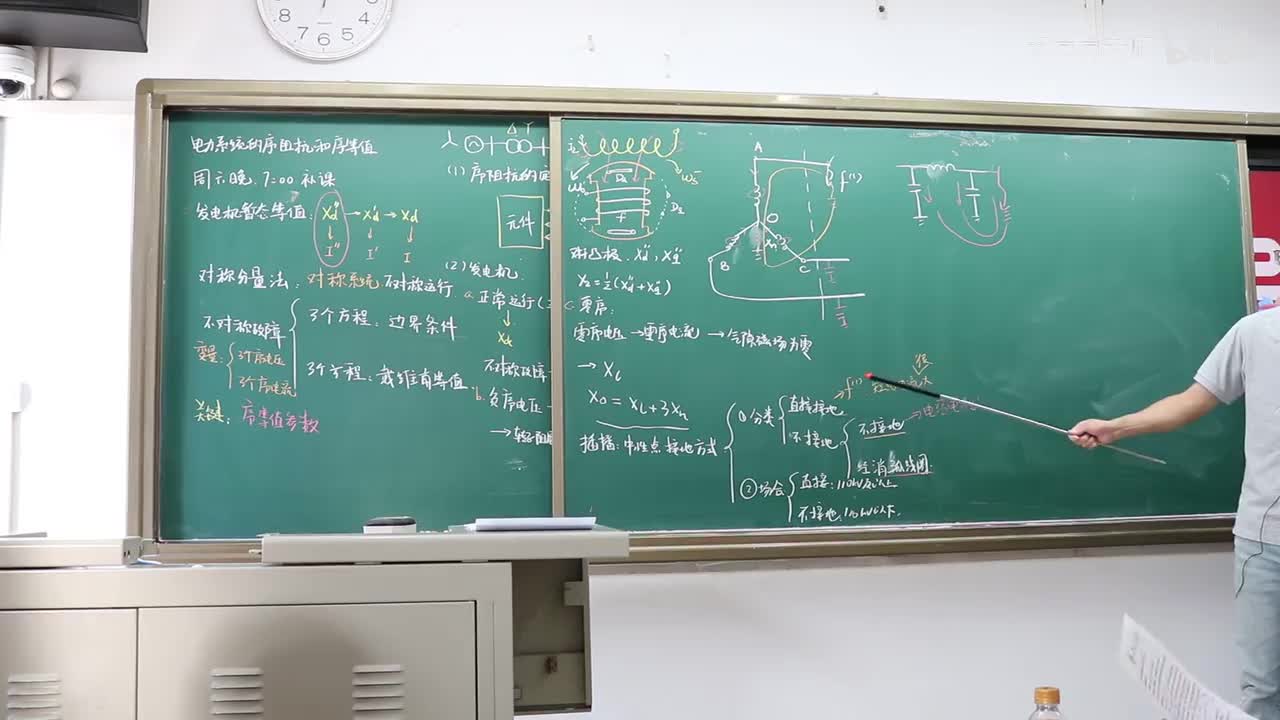 电力系统的序阻抗和序等值
周六晚, 7:00 补课
发电机暂态等值: Xd'' → Xd' → Xd
I'' I' I
对称分量法: 对称系统 不对称运行.
不对称故障
3个方程: 边界条件
变量: 3个序电压
3个序电流
3个方程: 戴维南等值.
关键: 序等值参数
Δ Y
(1) 序阻抗的
元件
(2) 发电机.
a. 正常运行(
Xd
不对称故障
b. 负序电压
D2
Xd'', Xq''
X2 = ½(Xd''+Xq'')
c. 零序:
零序电压 → 零序电流 → 气隙磁场为零
→ XL
X0 = XL+3Xn
插播: 中性点接地方式
① 分类
直接接地
不接地
不接地
经消弧线圈.
② 场合
直接: 110kV及以上
不接地:
A
O
B
C
f(1)
f(1)